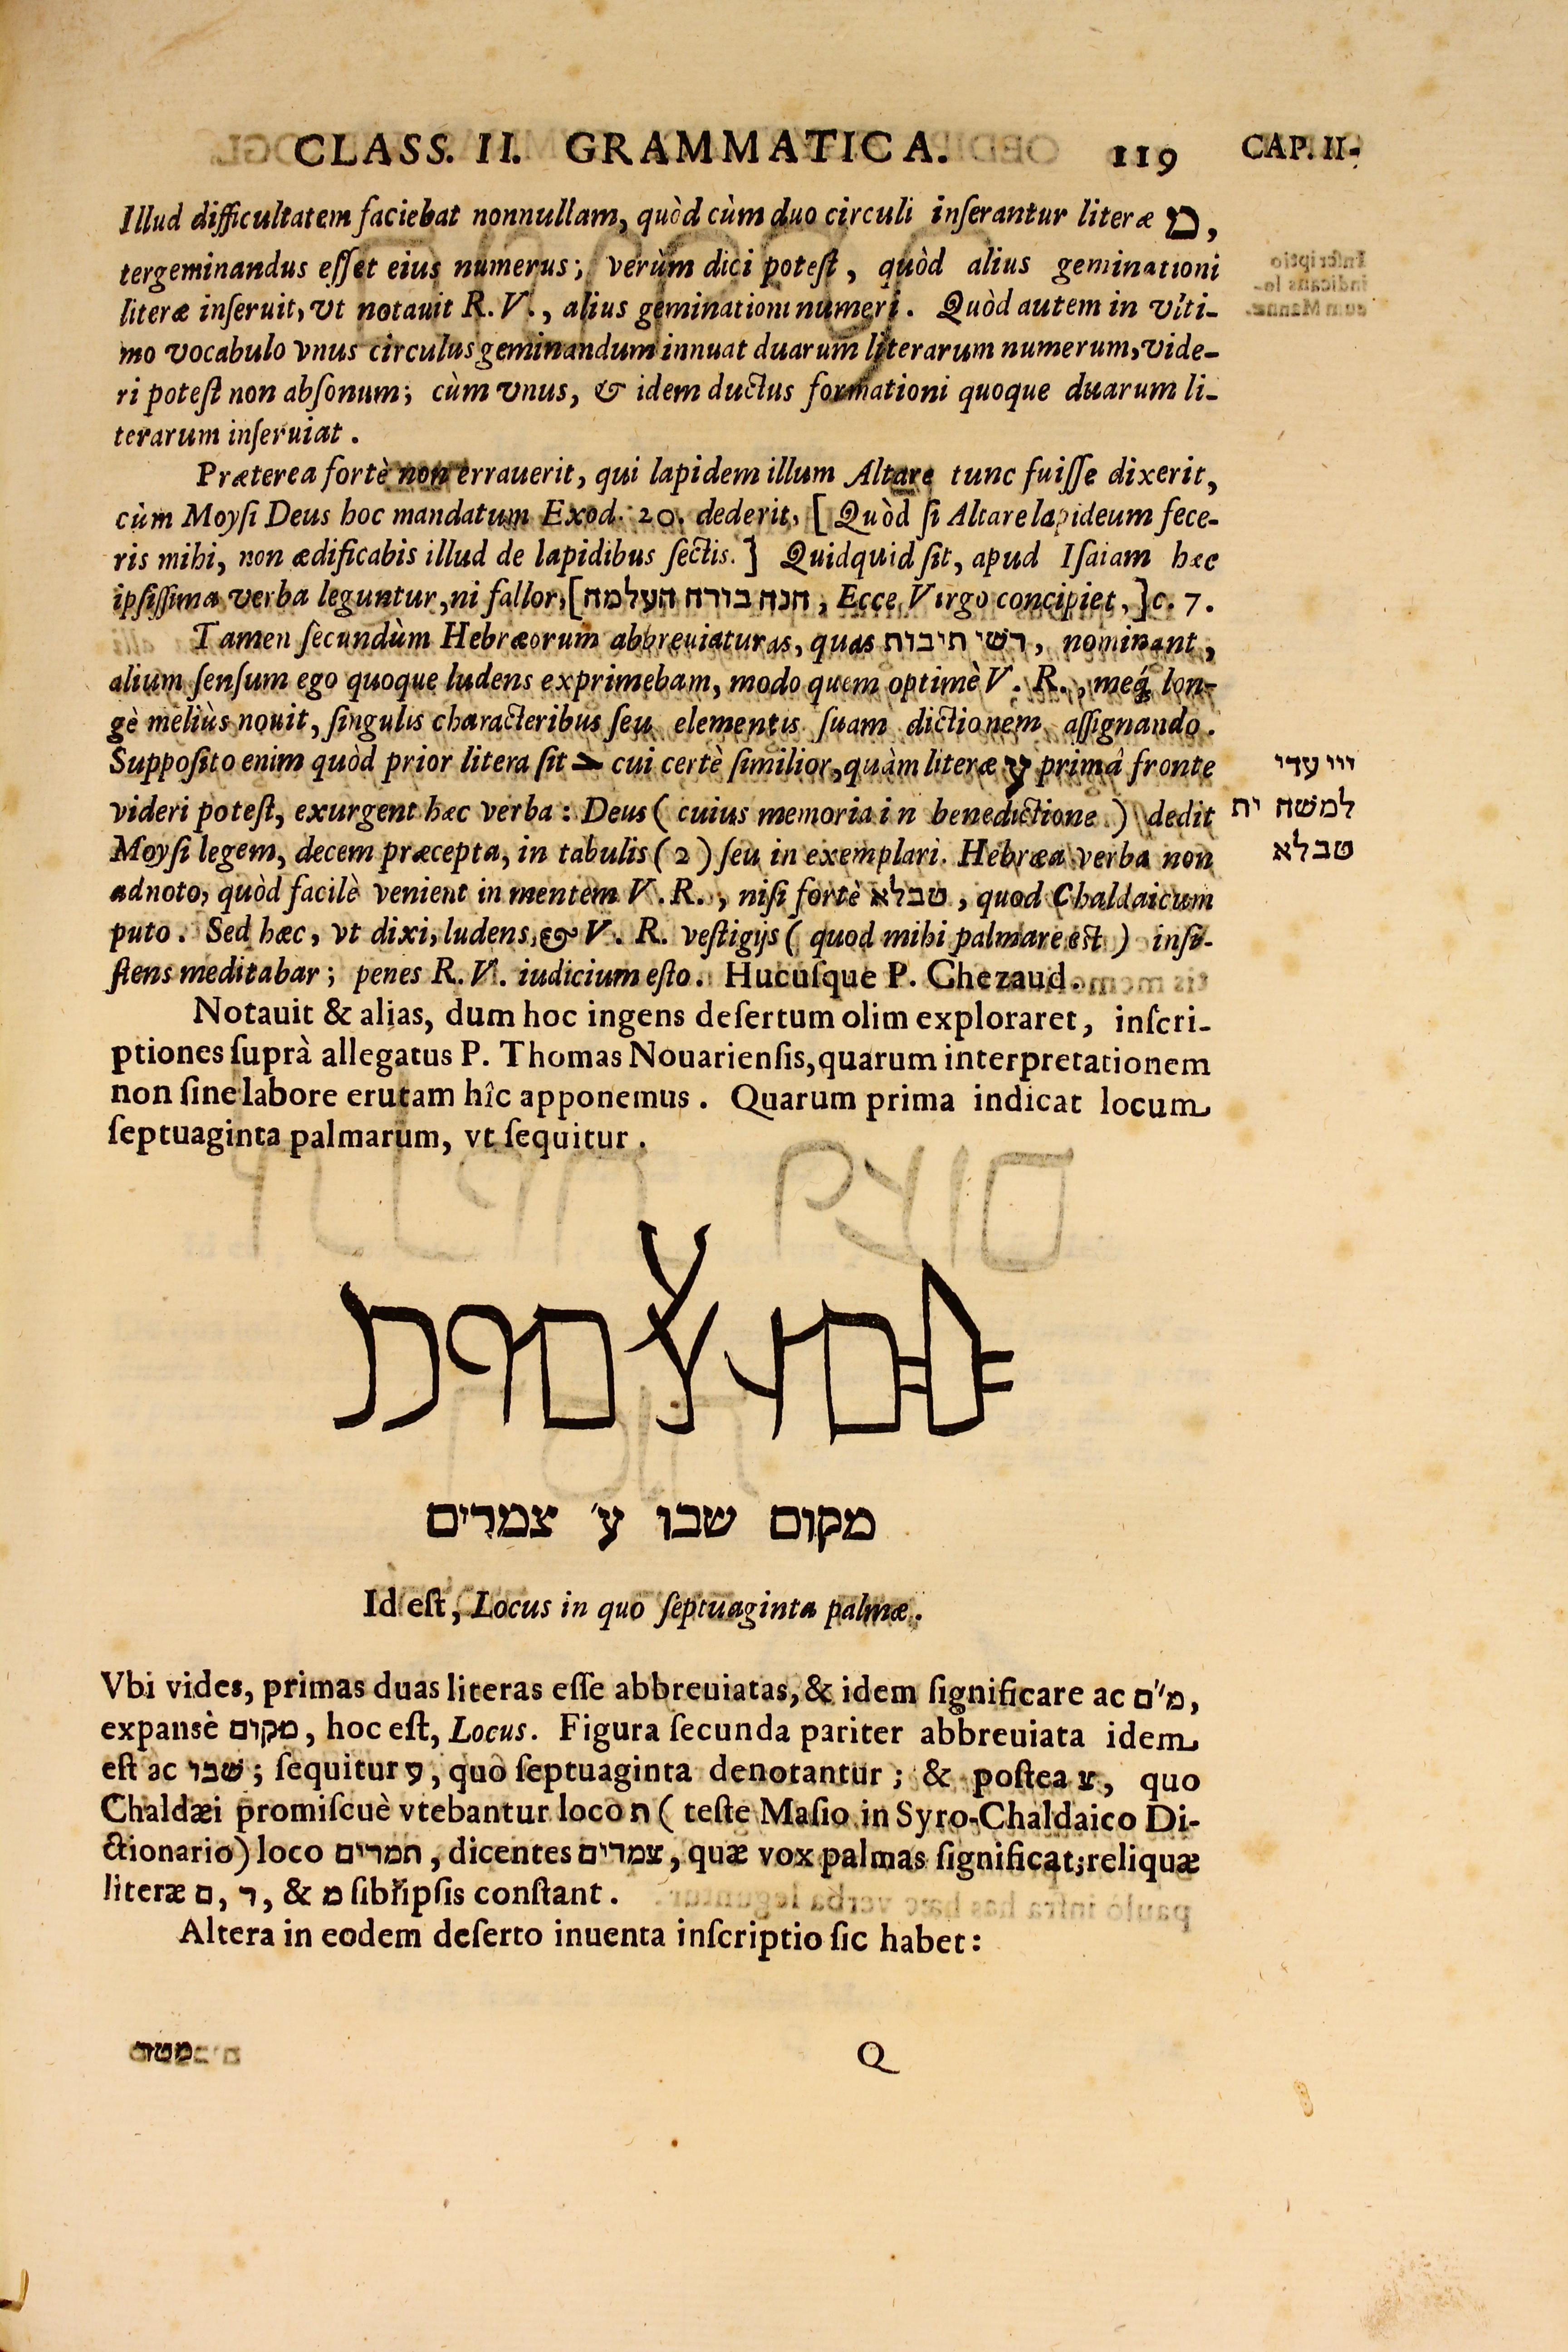 CLASS. II. GRAMMATICA. 119 CAP. II.
Illud difficultatem faciebat nonnullam, quòd cùm duo circuli inſerantur literæ מ,
tergeminandus eſſet eius numerus; verùm dici poteſt, quòd alius geminationi
literæ inſeruit, vt notauit R. V., alius geminationi numeri. Quòd autem in vlti-
mo vocabulo vnus circulus geminandum innuat duarum literarum numerum, vide-
ri poteſt non abſonum; cùm vnus, & idem ductus formationi quoque duarum li-
terarum inſeruiat.
Præterea fortè non errauerit, qui lapidem illum Altare tunc fuiſſe dixerit,
cùm Moyſi Deus hoc mandatum Exod. 20. dederit, [Quòd ſi Altare lapideum fece-
ris mihi, non ædificabis illud de lapidibus ſectis.] Quidquid ſit, apud Iſaiam hæc
ipſiſſima verba leguntur, ni fallor, [הנה בורה העלמה, Ecce Virgo concipiet,] c. 7.
Tamen ſecundùm Hebræorum abbreuiaturas, quas רשי תיבות, nominant,
alium ſenſum ego quoque ludens exprimebam, modo quem optimè V. R., meq́ lon-
gè meliùs nouit, ſingulis characteribus ſeu elementis ſuam dictionem aſſignando.
Suppoſito enim quòd prior litera ſit cui certè ſimilior, quàm literæ ע primâ fronte
videri poteſt, exurgent hæc verba: Deus (cuius memoria in benedictione) dedit
Moyſi legem, decem præcepta, in tabulis (2) ſeu in exemplari. Hebræa verba non
adnoto, quòd facilè venient in mentem V. R., niſi fortè טבלא, quod Chaldaicum
puto. Sed hæc, vt dixi, ludens, & V. R. veſtigijs (quod mihi palmare eſt) inſi-
ſtens meditabar; penes R. V. iudicium eſto. Hucuſque P. Chezaud.
ייי עדי
למשה ית
טבלא
Notauit & alias, dum hoc ingens deſertum olim exploraret, inſcri-
ptiones ſuprà allegatus P. Thomas Nouarienſis, quarum interpretationem
non ſine labore erutam hîc apponemus. Quarum prima indicat locum
ſeptuaginta palmarum, vt ſequitur.
מקום שבו ע׳ צמרים
Id eſt, Locus in quo ſeptuaginta palmæ.
Vbi vides, primas duas literas eſſe abbreuiatas, & idem ſignificare ac מ״ם,
expansè מקום, hoc eſt, Locus. Figura ſecunda pariter abbreuiata idem
eſt ac שבו; ſequitur ע, quo ſeptuaginta denotantur; & poſtea צ, quo
Chaldæi promiſcuè vtebantur loco ת (teſte Maſio in Syro-Chaldaico Di-
ctionario) loco תמרים, dicentes צמרים, quæ vox palmas ſignificat; reliquæ
literæ ם, ר, & מ ſibi ipſis conſtant.
Altera in eodem deſerto inuenta inſcriptio ſic habet:
Q